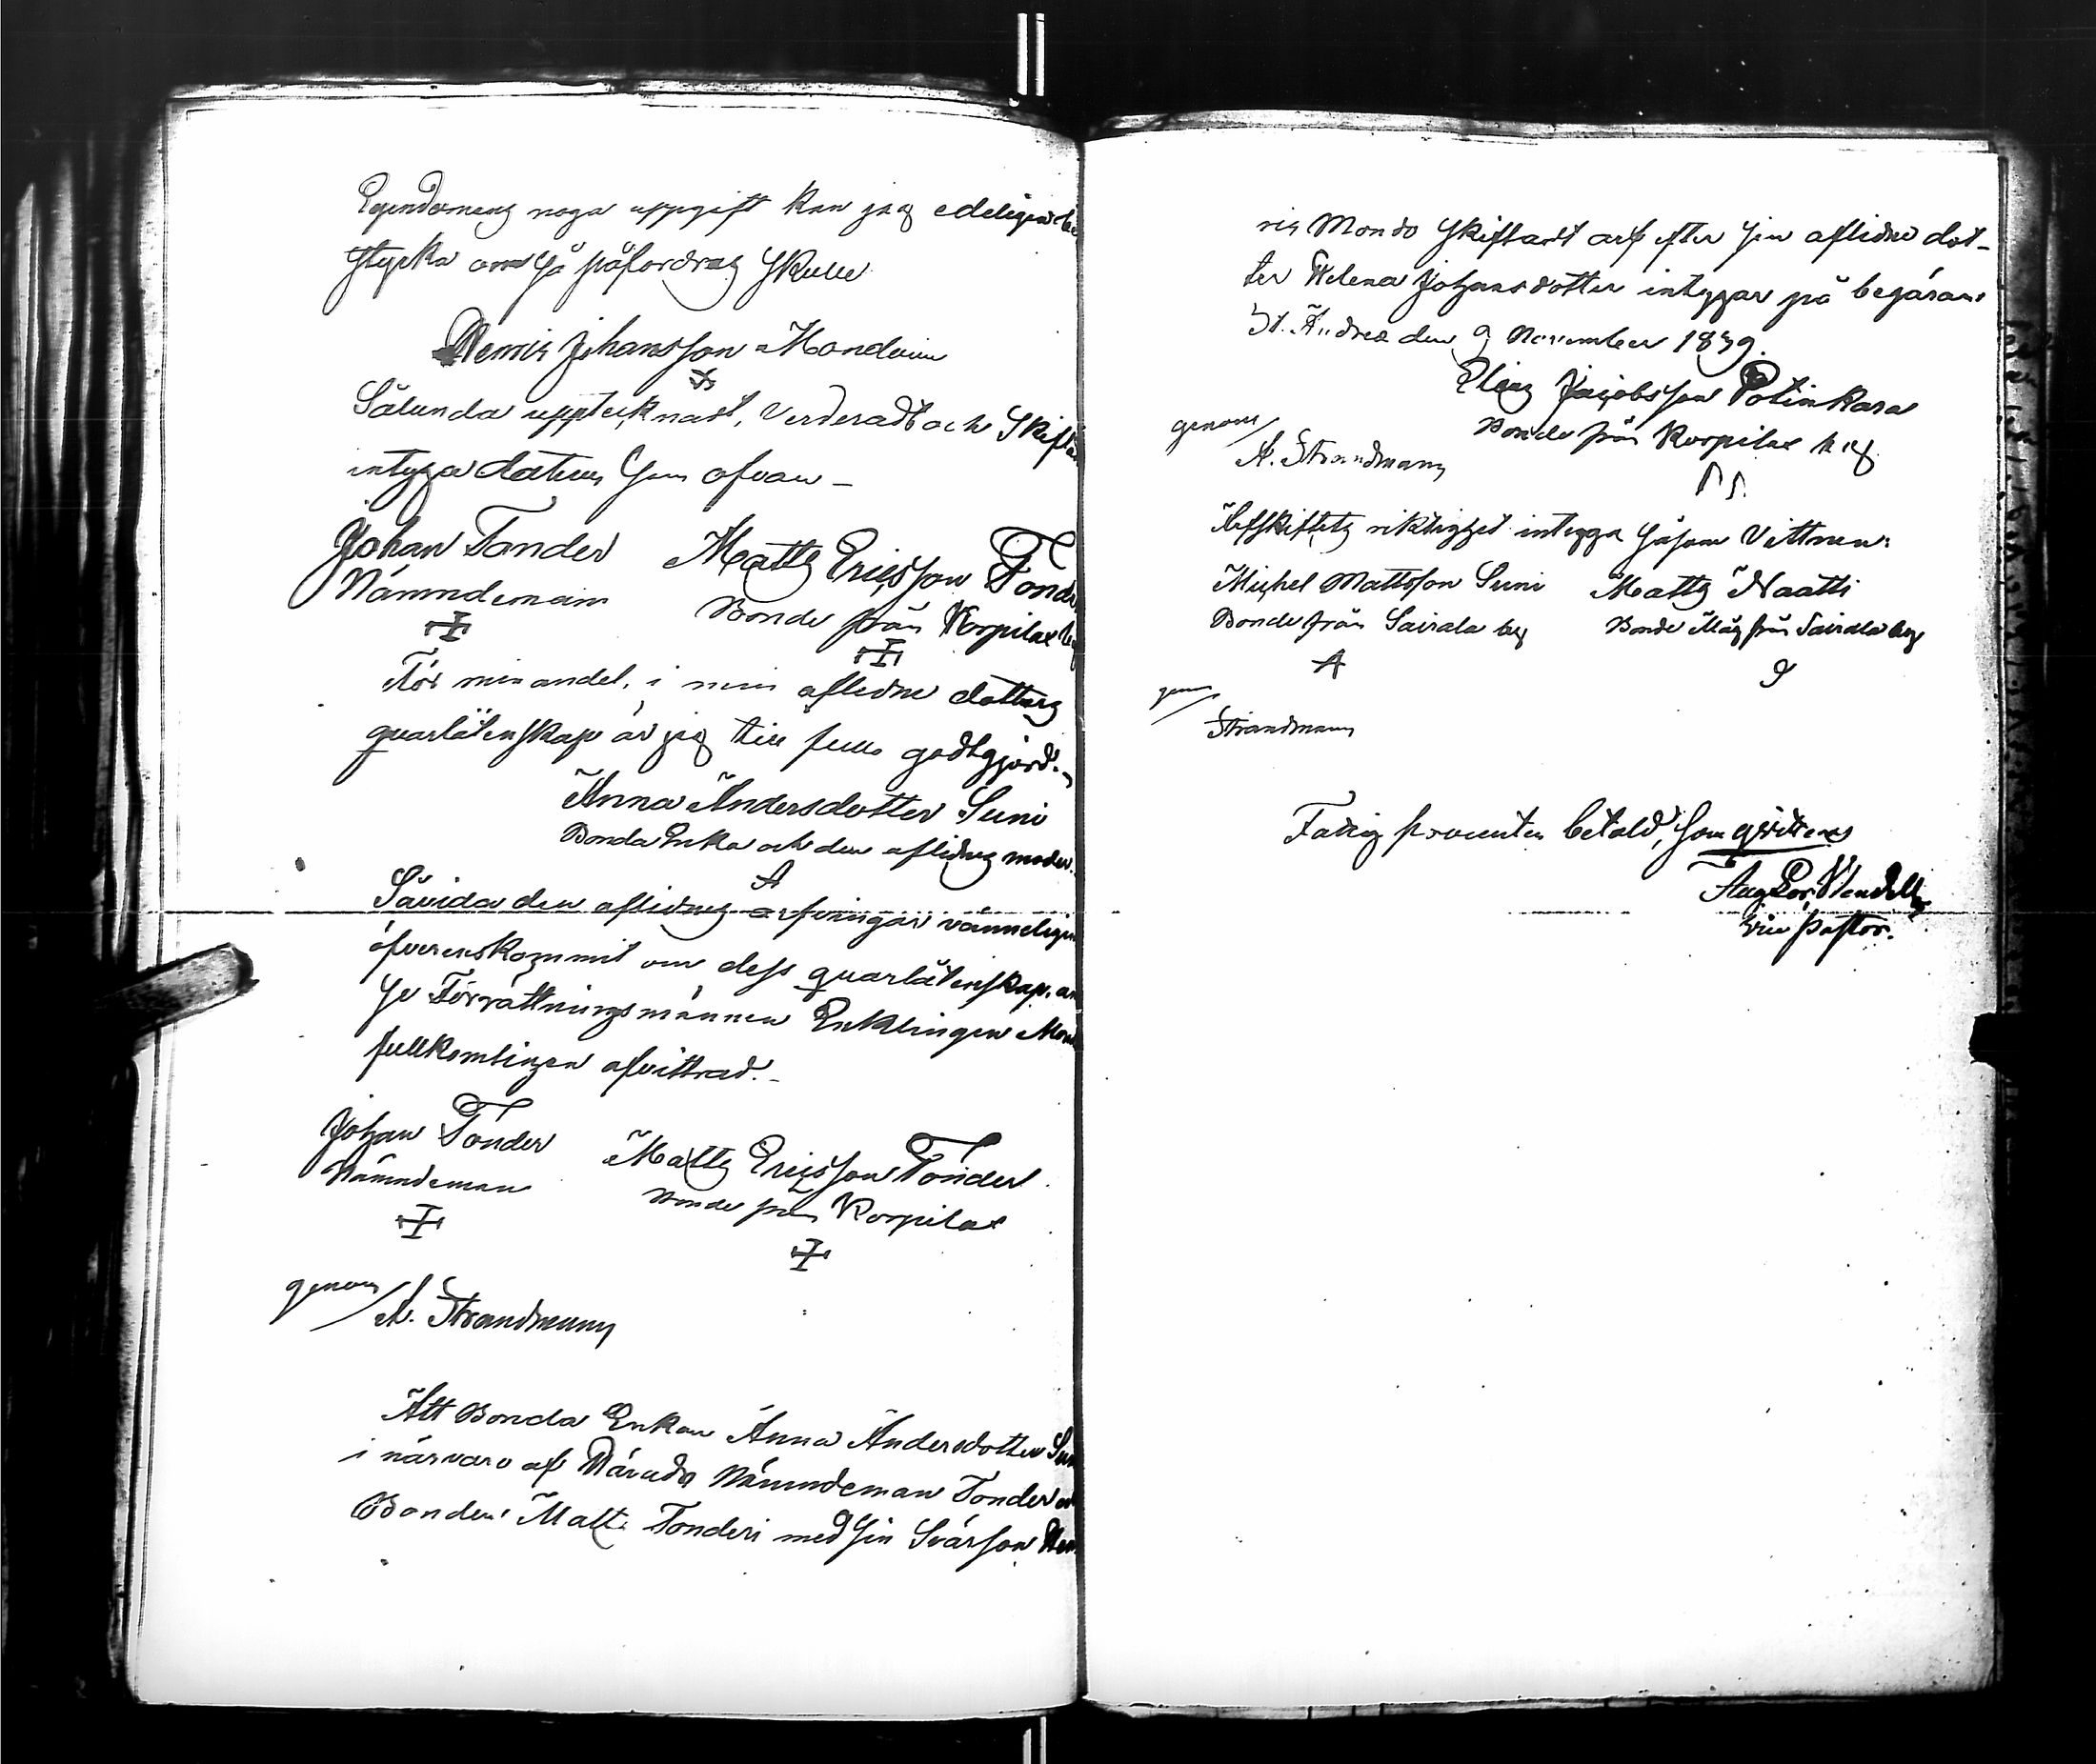 Egendomens noga uppgift kan jag edeligen be
styrka om så påfordras skulle
Henric Johansson Mondoin
Sålunda upptecknadt, verderadt och Skifta
intyga datum som ofvan _
Johan Tonder Matts Ericsson Tonde
Nämndeman Bonde från Korpilax by
För min andel, i min aflidne dotters
quarlåtenskap är jag till fullo godtgjord._
Anna Andersdotter Suni
Bonda Enka och den aflidnes moder.
A
Såvida den aflidnes arfvingar vänneligen
öfverenskommit om dess quarlåtenskap, an
se Förrättningsmännen Enklingen Mon
fullkomligen afvittrad._
Johan Tonder Matts Ericsson Tonder
Nämndeman Bonde från Korpilax
genom
A. Strandmann
Att Bonda Enkan Anna Andersdotter Sun
i närvaro af Härads Nämndeman Tonder o
Bonden Matts Tonderi med sin Svärson Hen
ric Mondo Skiftadt arf efter sin aflidne dot-
ter Helena Johansdotter intygar på begäran
St. Andreæ den 9 November 1839.
Elias Jacobsson Potinkara
genom Bonde från Korpilax by
A. Strandmann
Arfskiftets riktighet intyga såsom Vittnen:
Michel Mattsson Suni Matts Naatti
Bonde från Sairala by Bonde Måg från Sairala by
A
genom
Strandmann
Fattig procenten betald, som qvitteras
Aug Por. Wendell
Vice Pastor.